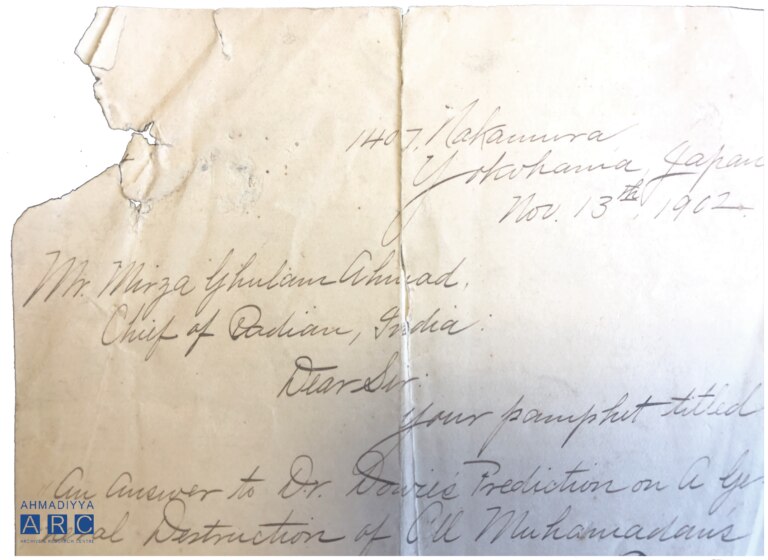 1407, Nakamura
Yokohama, Japan
Nov. 13th, 1902.
Mr. Mirza Ghulam Ahmad,
Chief of Qadian, India:
Dear Sir:
Your pamphet titled
An Answer to Dr. Dowie's Prediction on A Ge-
neral Destruction of All Muhamadans
AHMADIYYA
ARC
ARCHIVE & RESEARCH CENTRE